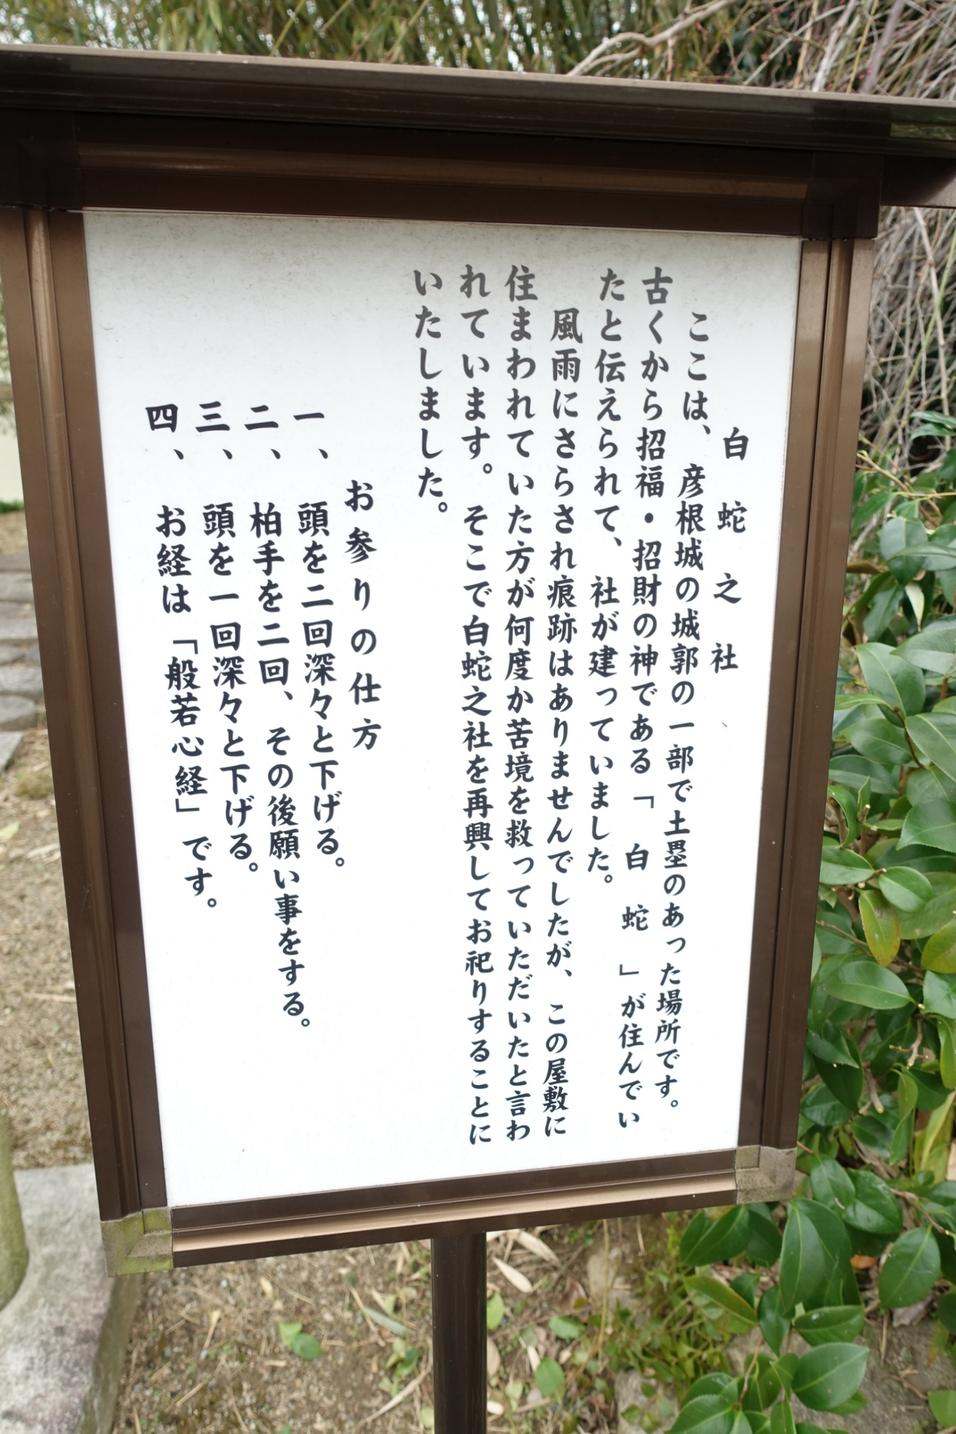 白蛇之社
ここは、彦根城の城郭の一部で土塁のあった場所です。
古くから招福・招財の神である「白蛇」が住んでい
たと伝えられて、社が建っていました。
風雨にさらされ痕跡はありませんでしたが、この屋敷に
住まわれていた方が何度か苦境を救っていただいたと言わ
れています。そこで白蛇之社を再興してお祀りすることに
いたしました。
お参りの仕方
一、頭を二回深々と下げる。
二、柏手を二回、その後願い事をする。
三、頭を一回深々と下げる。
四、お経は「般若心経」です。